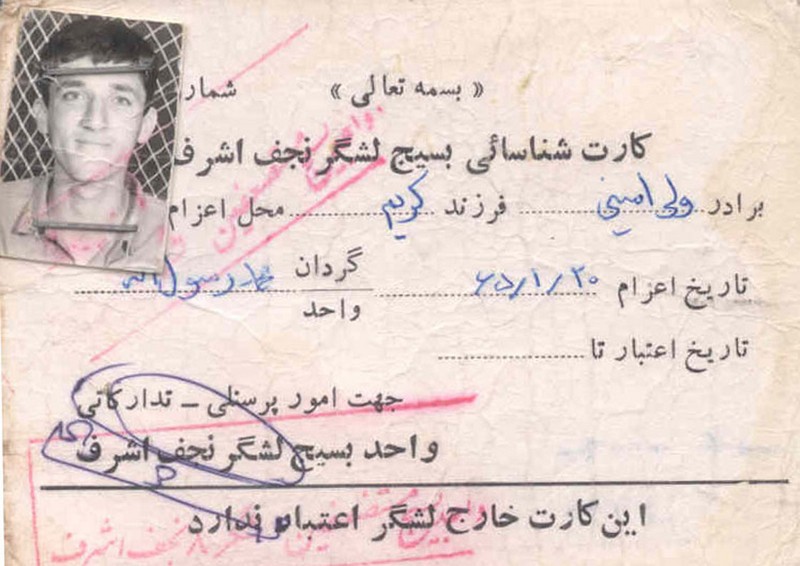 « بسمه تعالی » شمار
کارت شناسائی بسیج لشگر نجف اشرف
برادر ولی امینی فرزند کریم محل اعزام
تاریخ اعزام ۶۵/۱/۲۰ گردان محمد رسول الله
واحد
تاریخ اعتبار تا
جهت امور پرسنلی ــ تدارکاتی
واحد بسیج لشگر نجف اشرف
این کارت خارج لشگر اعتبار ندارد
نجف اشرف